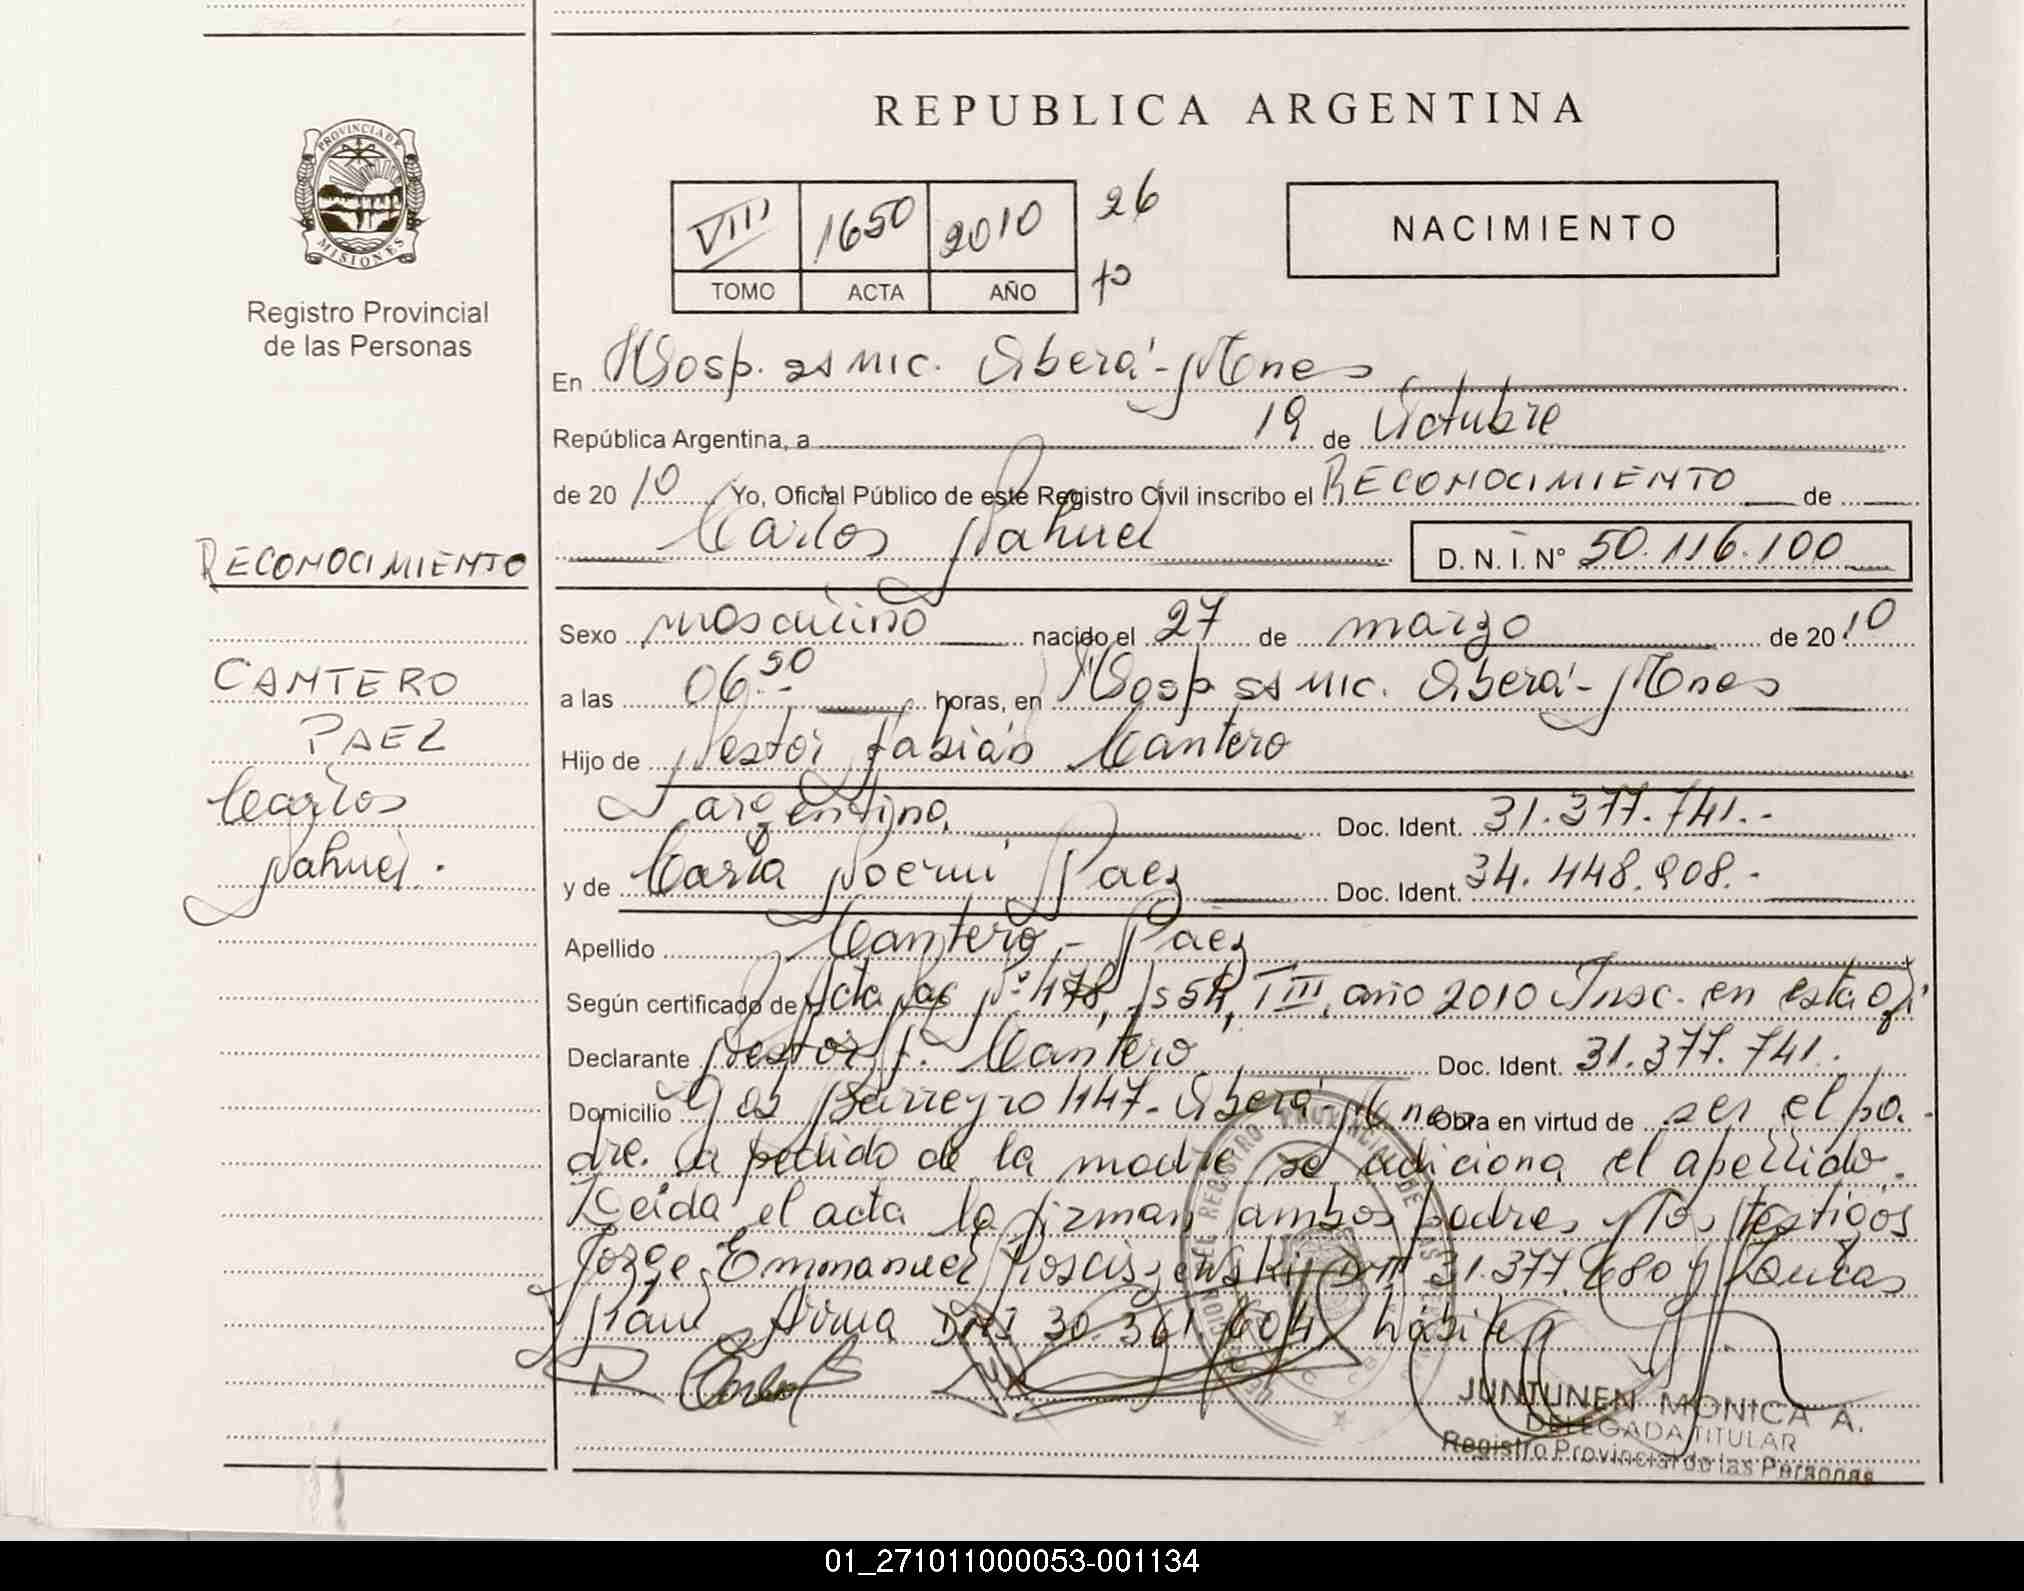 REPUBLICA ARGENTINA
PROVINCIA DE
MISIONES
Registro Provincial
de las Personas
VIII 1650 2010 26
TOMO ACTA AÑO
NACIMIENTO
En Hosp. SAMIC. Oberá-Mnes
República Argentina, a 19 de Octubre
de 2010 Yo, Oficial Público de este Registro Civil inscribo el RECONOCIMIENTO de
Carlos Nahuel D. N. I. Nº 50.116.100
RECONOCIMIENTO
CANTERO
PAEZ
Carlos
Nahuel.
Sexo masculino nacido el 27 de marzo de 2010
a las 06.50 horas, en Hosp SAMIC. Oberá-Mnes
Hijo de Nestor Fabián Cantero
argentina Doc. Ident. 31.377.741.-
y de Carla Noemi Paez Doc. Ident. 34.448.908.-
Apellido Cantero - Paez
Según certificado de Acta Nac Nº 478, Fs 54, T III, año 2010 Insc. en esta Ofi
Declarante Nestor F. Cantero Doc. Ident. 31.377.741.
Domicilio Gob Barreyro 447- Oberá-Mnes Obra en virtud de ser el pa-
dre. a pedido de la madre se adiciona el apellido.
Leida el acta la firman ambos padres y los testigos
Jorge Emmanuel DNI 31.377.680 y Lucas
DNI 30.361.604, hábiles
JUNTUNEN MONICA A.
DELEGADA TITULAR
Registro Provincial de las Personas
01_271011000053-001134